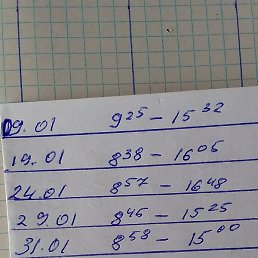 09.01 9²⁵ – 15³²
19.01 8³⁸ – 16⁰⁵
24.01 8⁵⁷ – 16⁴⁸
29.01 8⁴⁵ – 15²⁵
31.01 8⁵⁸ – 15⁰⁰